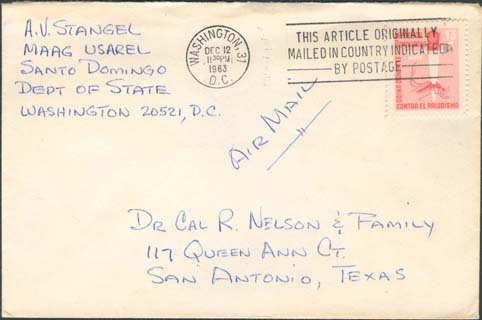 A.V. STANGEL
MAAG USAREL
SANTO DOMINGO
DEPT OF STATE
WASHINGTON 20521, D.C.
WASHINGTON, 37
DEC 12
1963
D.C.
THIS ARTICLE ORIGINALLY
MAILED IN COUNTRY INDICATED
BY POSTAGE
13
CONTRA EL PALUDISMO
AIR MAIL
DR CAL R. NELSON & FAMILY
117 QUEEN ANN CT.
SAN ANTONIO, TEXAS